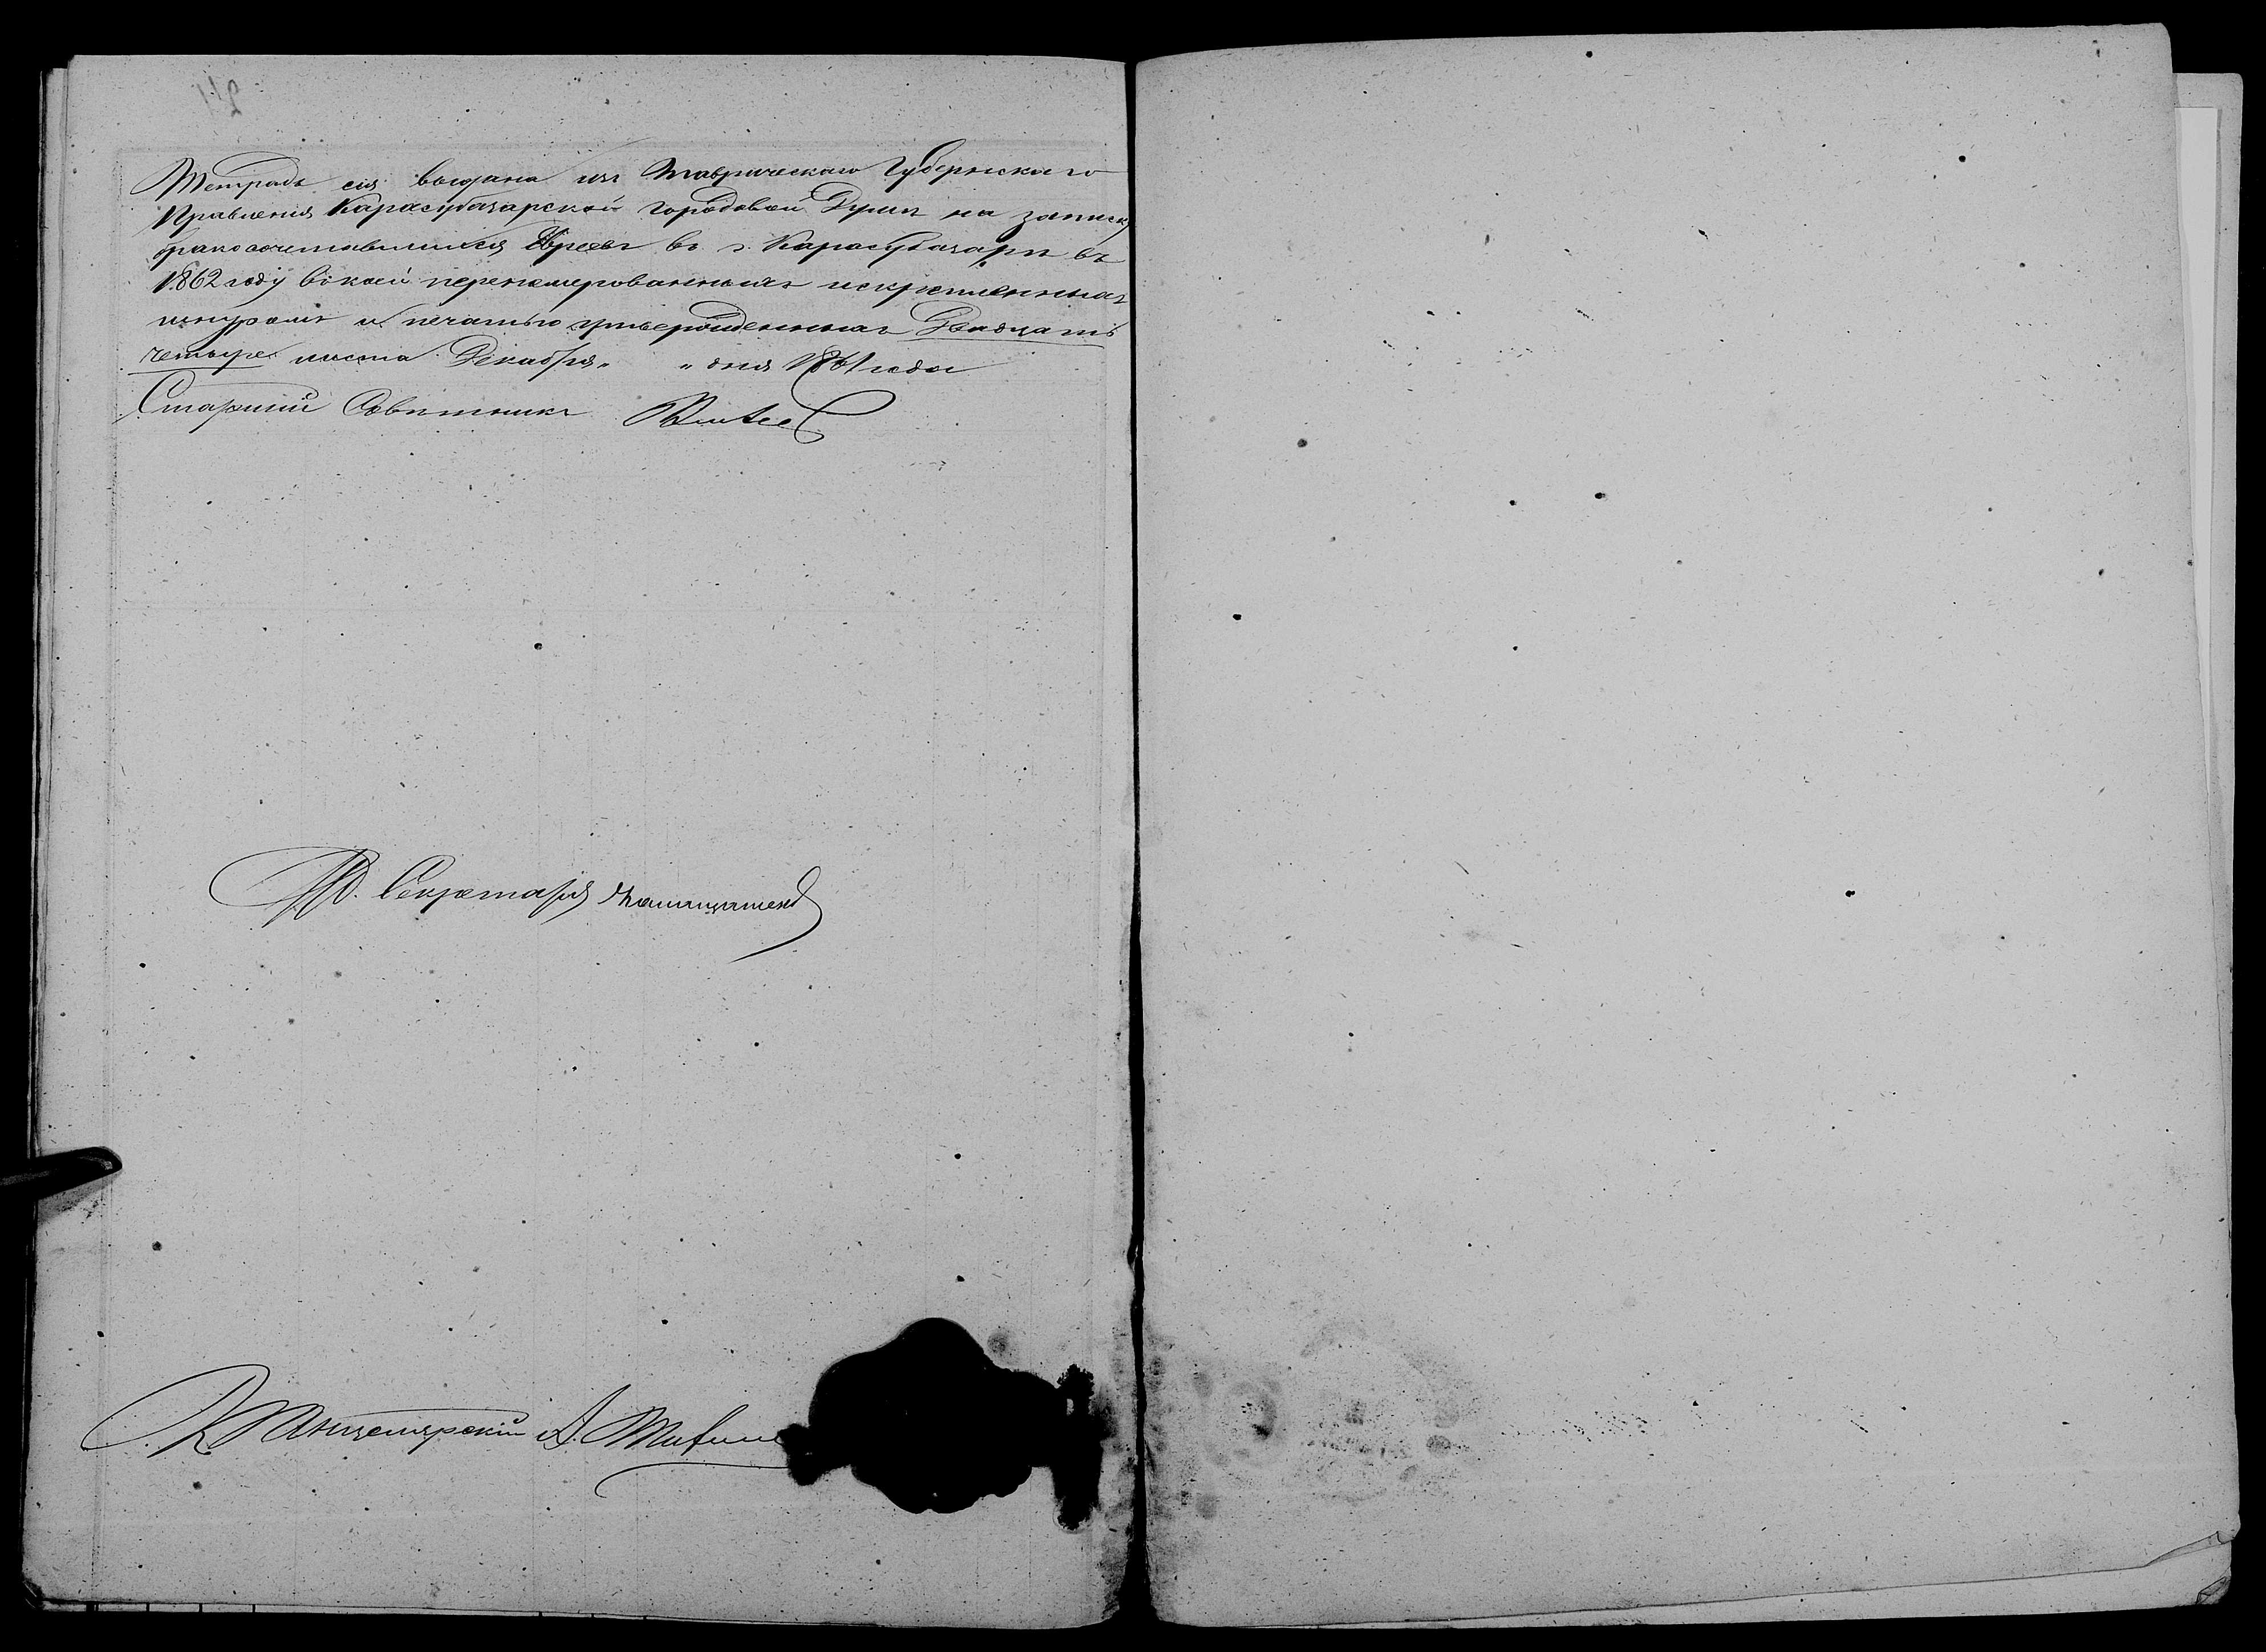 Тетрадь сия выдана изъ Таврическаго Губернскаго
Правления Карасубазарской Городовой Думѣ на записку
бракосочетавшихся Евреевъ въ г. Карасубазарѣ въ
1862 году въ коей перенумерованныхъ искрепленныхъ
шнуромъ и печатью утвержденныхъ Двадцать
четыре листа Декабря " " дня 1861 года
Старшій Совѣтникъ
И.Д. Секретаря
Канцелярскій А.